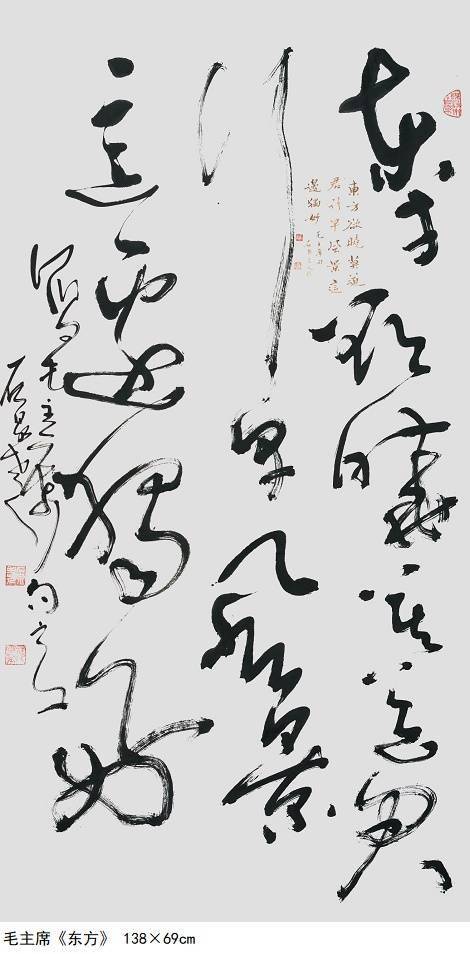 東方欲曉莫道君
行早風景
這邊獨好
東方欲曉莫道
君行早風景這
邊獨好
毛主席
毛主席《东方》 138×69cm